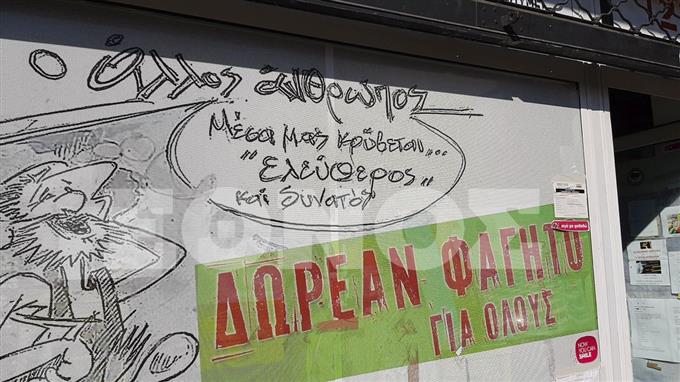 ο άλλος άνθρωπος
Μέσα μας κρύβεται...
"Ελεύθερος"
και δυνατός
ΕΘΝΟΣ
ΔΩΡΕΑΝ ΦΑΓΗΤΟ
ΓΙΑ ΟΛΟΥΣ
NOW
YOU CAN
SMILE
12